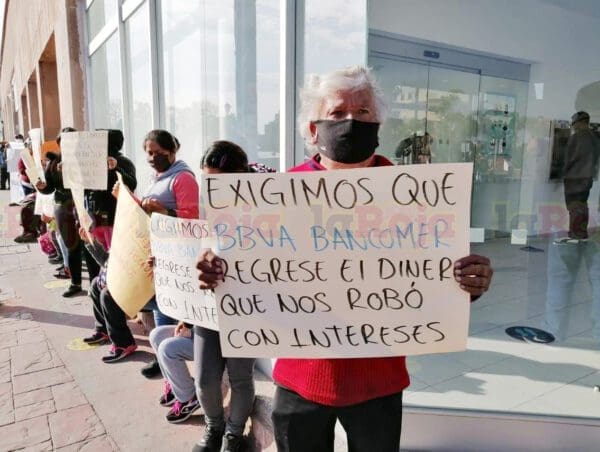 EXIGIMOS QUE
BBVA BANCOMER
REGRESE El DINER
QUE NOS ROBÓ
CON INTERESES
EXIGIMOS
BBVA BAN
REGRESE
QUE NOS R
CON INT
laRoja